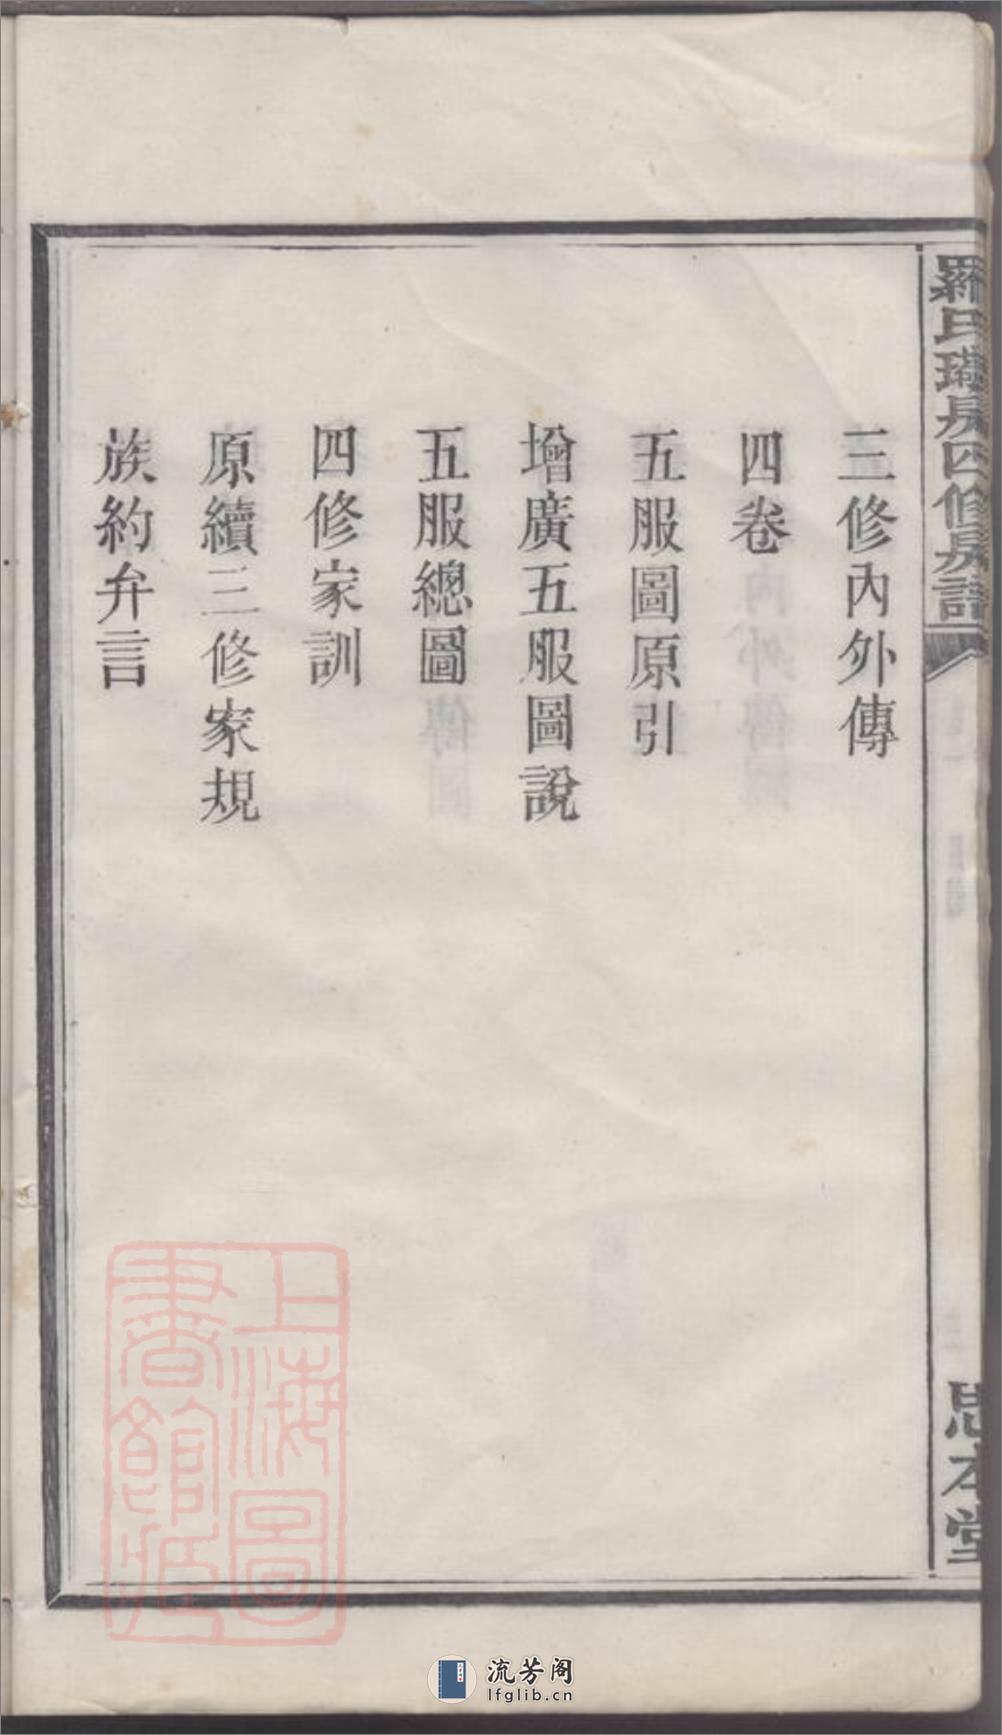 羅氏璜房四修房譜
思本堂
三修內外傳
四卷
五服圖原引
增廣五服圖說
五服總圖
四修家訓
原續三修家規
族約弁言
上海圖書館藏
流芳阁
lfglib.cn